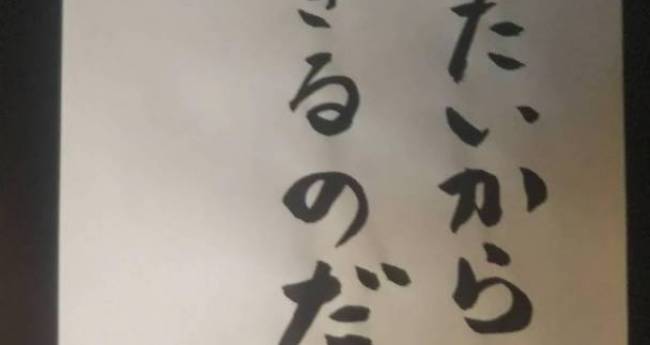 たいから
るのだ